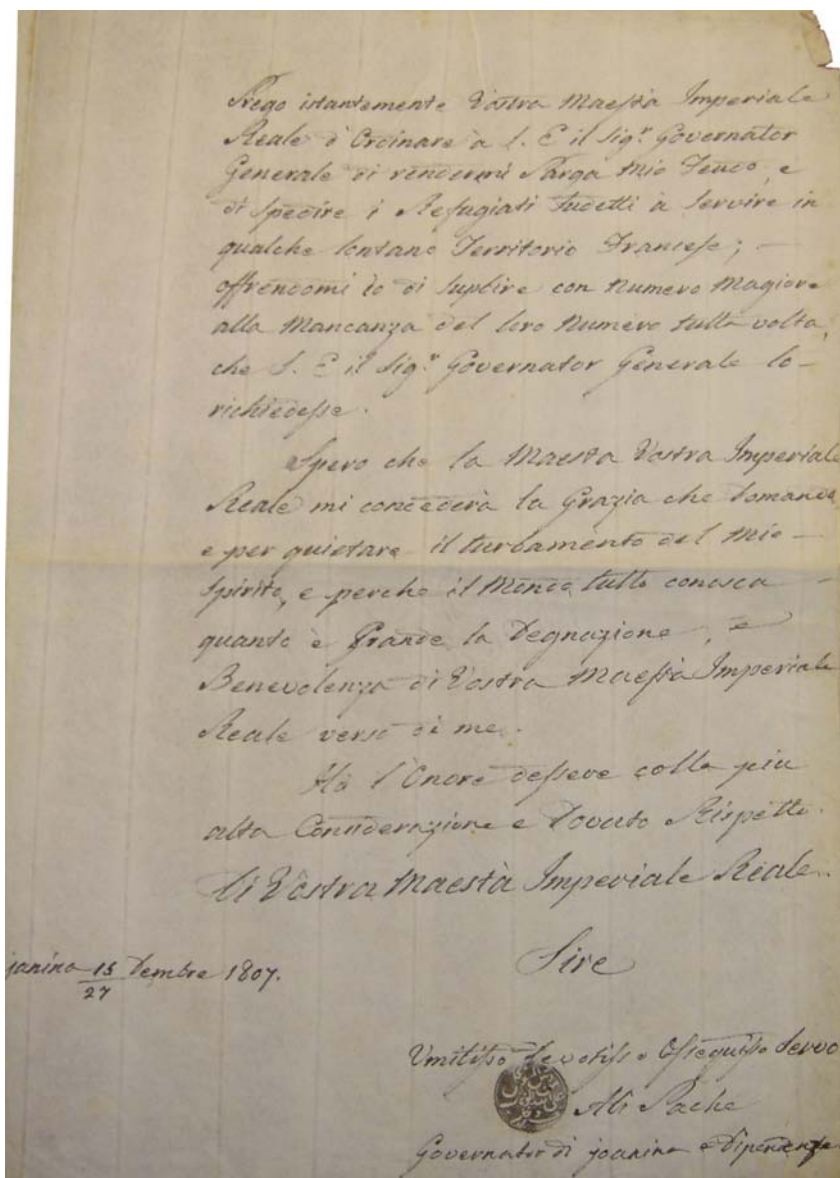 Prego istantemente Vostra Maestà Imperiale
Reale d'Ordinare à S. E il Sigr. Governator
Generale di rendermi Parga mio Feudo, e
di spedire i Refugiati sudetti à servire in
qualche lontano Territorio Francese; –
offrendomi io di suplire con Numero Magiore
alla Mancanza del loro Numero tutta volta,
che S. E il Sigr. Governator Generale lo –
richiedesse.
Spero che la Maesta Vostra Imperiale
Reale mi concederà la Grazia che domando
e per quietare il turbamento del mio –
spirito, e perche il Mondo tutto conosca –
quanto è Grande la Degnazione, e
Benevolenza di Vostra Maestà Imperiale
Reale verso di me.
Hò l'Onore d'essere colla piu
alta Considerazione e Dovuto Rispetto.
Di Vostra Maestà Imperiale Reale.
Sire
janina 15/27 Dembre 1807.
Umilisso Devotiss o Ossequisso Servo
Alì Pacha
Governator di joanina e Dipendenze